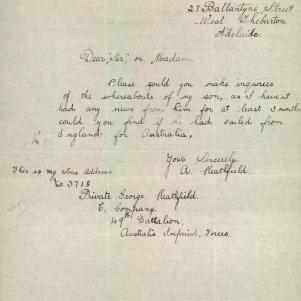 27 Ballantyne Street
West Thebarton
Adelaide
Dear, Sir, or Madam.
Please could you make inquiries
of the whereabouts of my son, as I havent
had any news from him for at least 3 months
could you find if he had sailed from
England for Australia.
Yours Sincerely
A. Heathfield.
This is my sons address.
No 3718
Private George. Heathfield.
C. Company.
49th Battalion.
Australia Imperial. Forces.